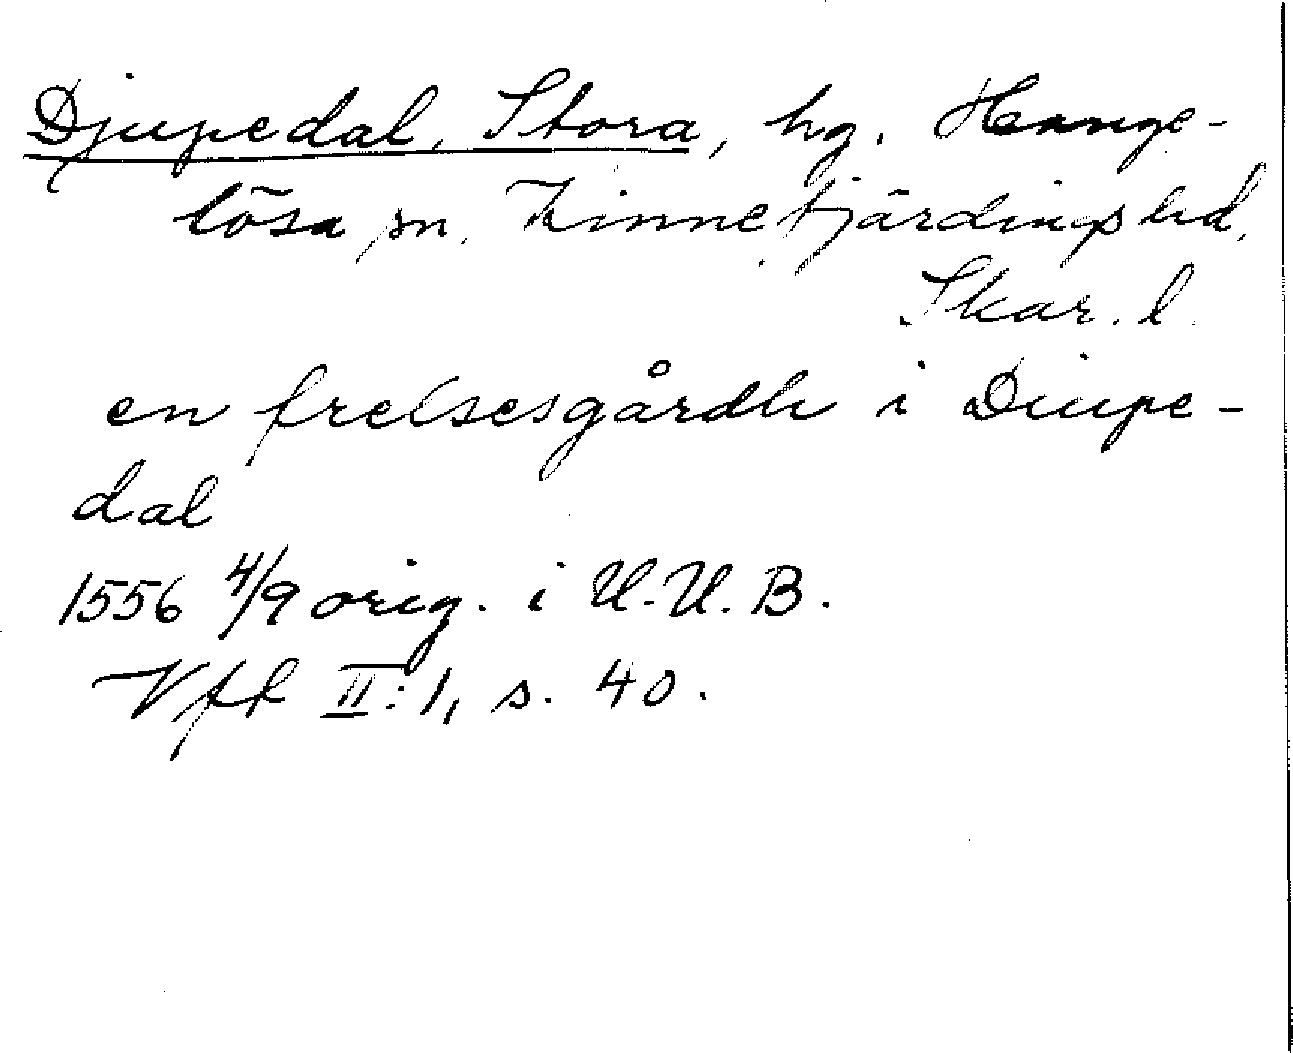 Djupedal, Stora, hg. Hange-
lösa sn. Kinnefjärdings hd,
Skar. l.
en frelsesgårdh i Diupe-
dal
1556 4/9 orig. i U.U.B.
Vft II:1, s. 40.